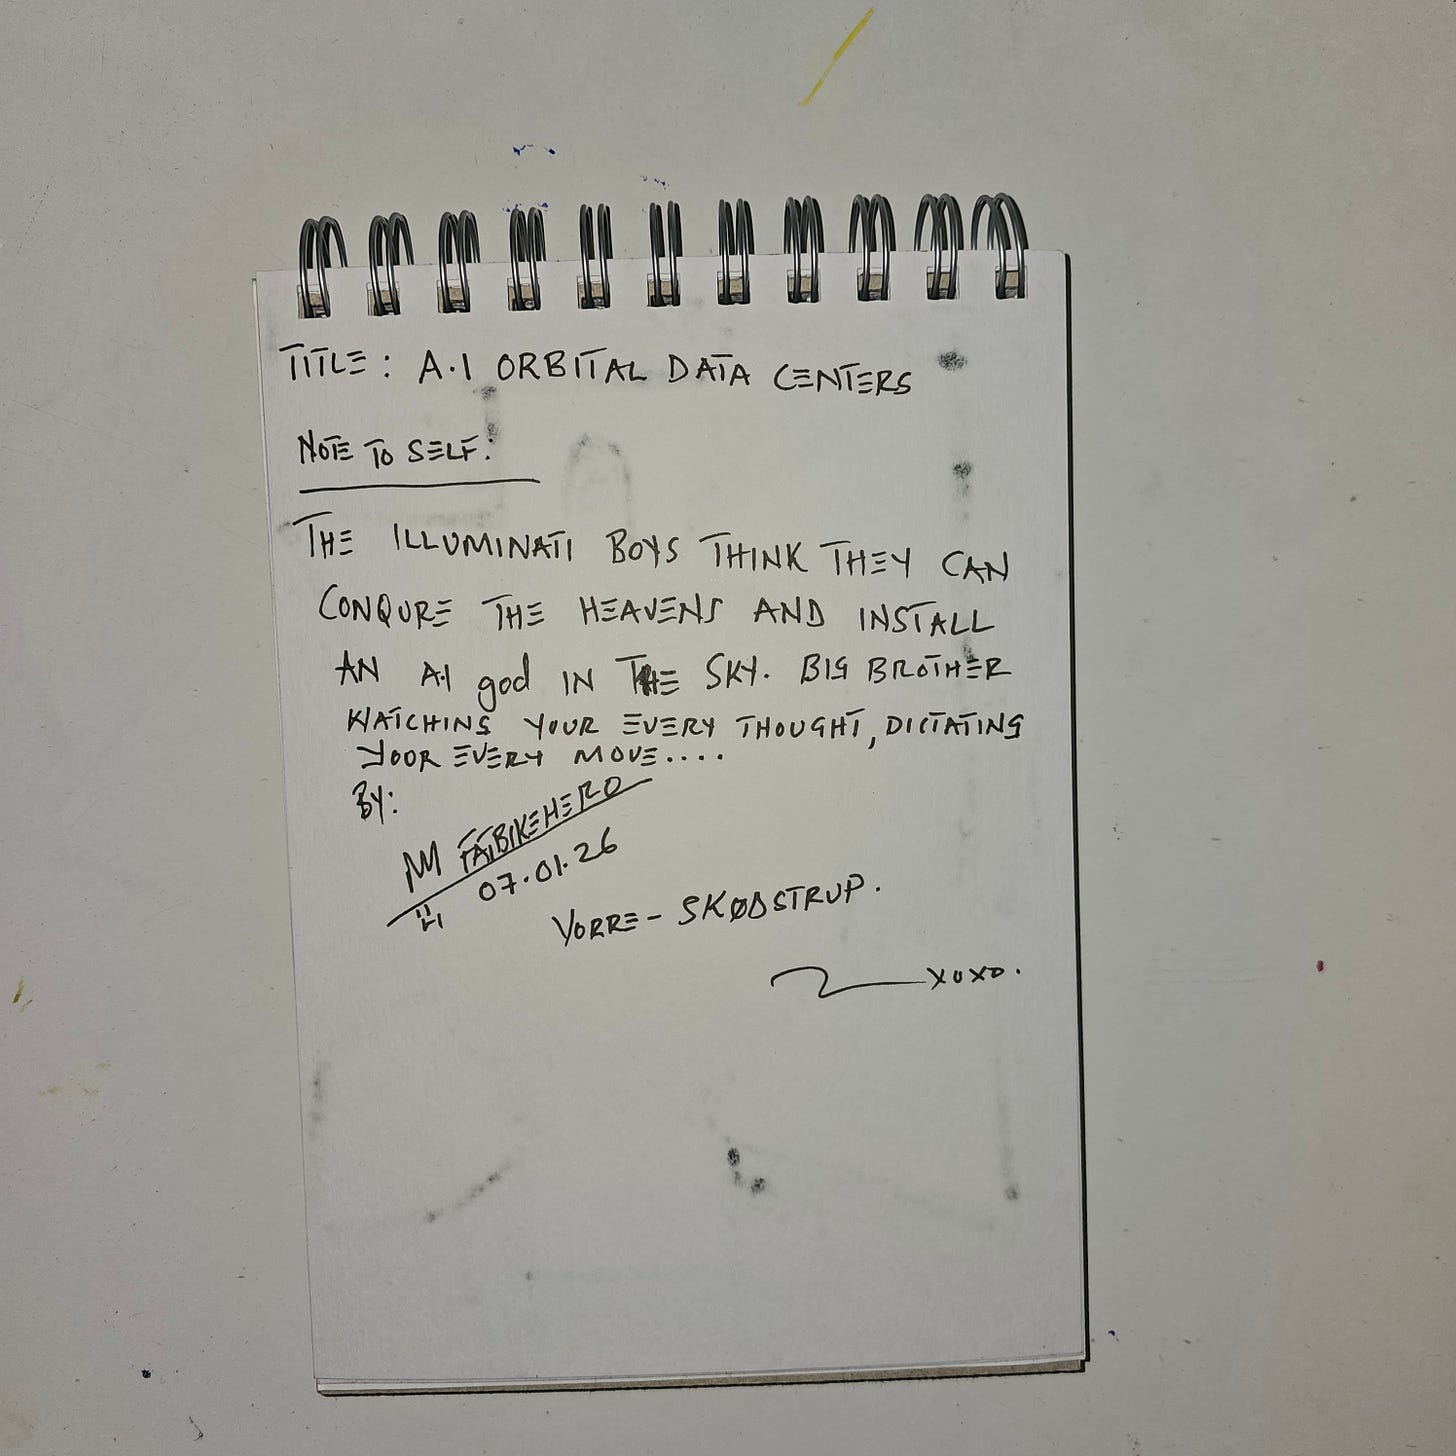 TITLE: A.I ORBITAL DATA CENTERS
NOTE TO SELF:
THE ILLUMINATI BOYS THINK THEY CAN
CONQURE THE HEAVENS AND INSTALL
AN A.I god IN THE SKY. BIG BROTHER
WATCHING YOUR EVERY THOUGHT, DICTATING
YOOR EVERY MOVE....
BY:
FATBIKEHERO
07.01.26
VORRE - SKØDSTRUP.
XOXO.